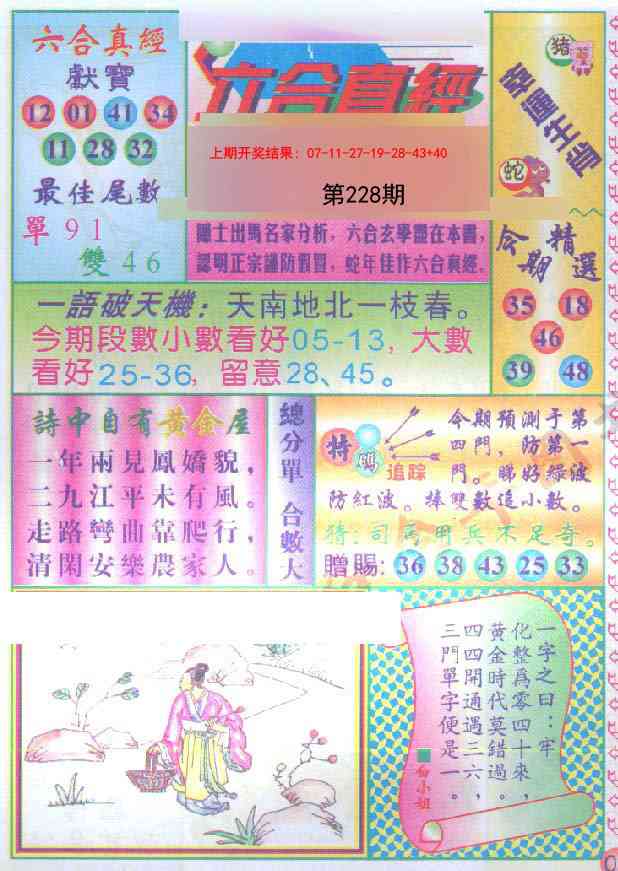 六合真經
獻寶
12 01 41 34
11 28 32
最佳尾數
單91
雙46
六合真經
上期开奖结果：07-11-27-19-28-43+40
第228期
隱士出馬名家分析，六合玄學盡在本書，
認明正宗謹防假冒，蛇年佳作六合真經。
猪
蛇
今期精選
35 18
46
39 48
一語破天機：天南地北一枝春。
今期段數小數看好05-13，大數
看好25-36，留意28、45。
詩中自有黃金屋
一年兩見鳳嬌貌，
二九江平未有風。
走路彎曲靠爬行，
清閑安樂農家人。
總分單 合數大
特碼
追踪
今期預測于第
四門，防第一
門。睇好綠波
防紅波。捧雙數追小數。
猜：司馬用兵不足奇。
贈賜：36 38 43 25 33
一字之曰：牢
化整爲零四十來，
黃金時代莫錯過。
四四開通遇三六，
三門單字便是一。
白小姐